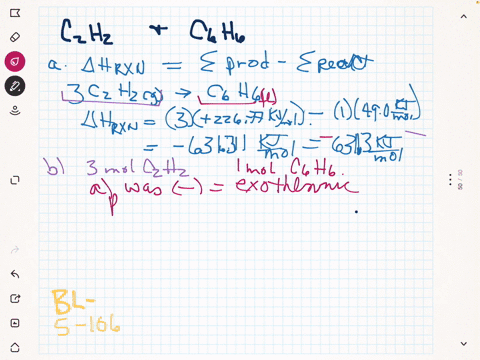 C₂H₂ & C₆H₆
a. ΔH_RXN = Σ prod - Σ react
3 C₂H₂(g) → C₆H₆(l)
ΔH_RXN = (3)(+226.77 KJ/mol) - (1)(49.0 KJ/mol)
= -631.31 KJ/mol = -631.3 KJ/mol
b) 3 mol C₂H₂ 1 mol C₆H₆.
a) p was (-) = exothermic
BL-
5-166
50 / 50